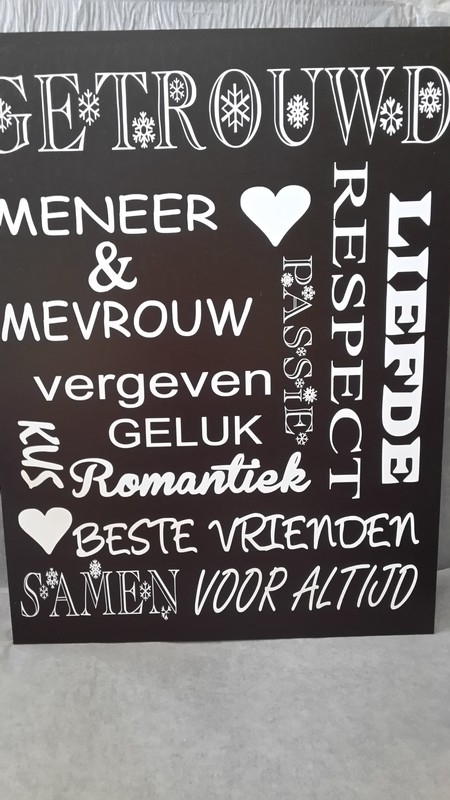 GETROUWD
MENEER
&
MEVROUW
PASSIE
RESPECT
LIEFDE
vergeven
GELUK
KUS
Romantiek
BESTE VRIENDEN
SAMEN VOOR ALTIJD